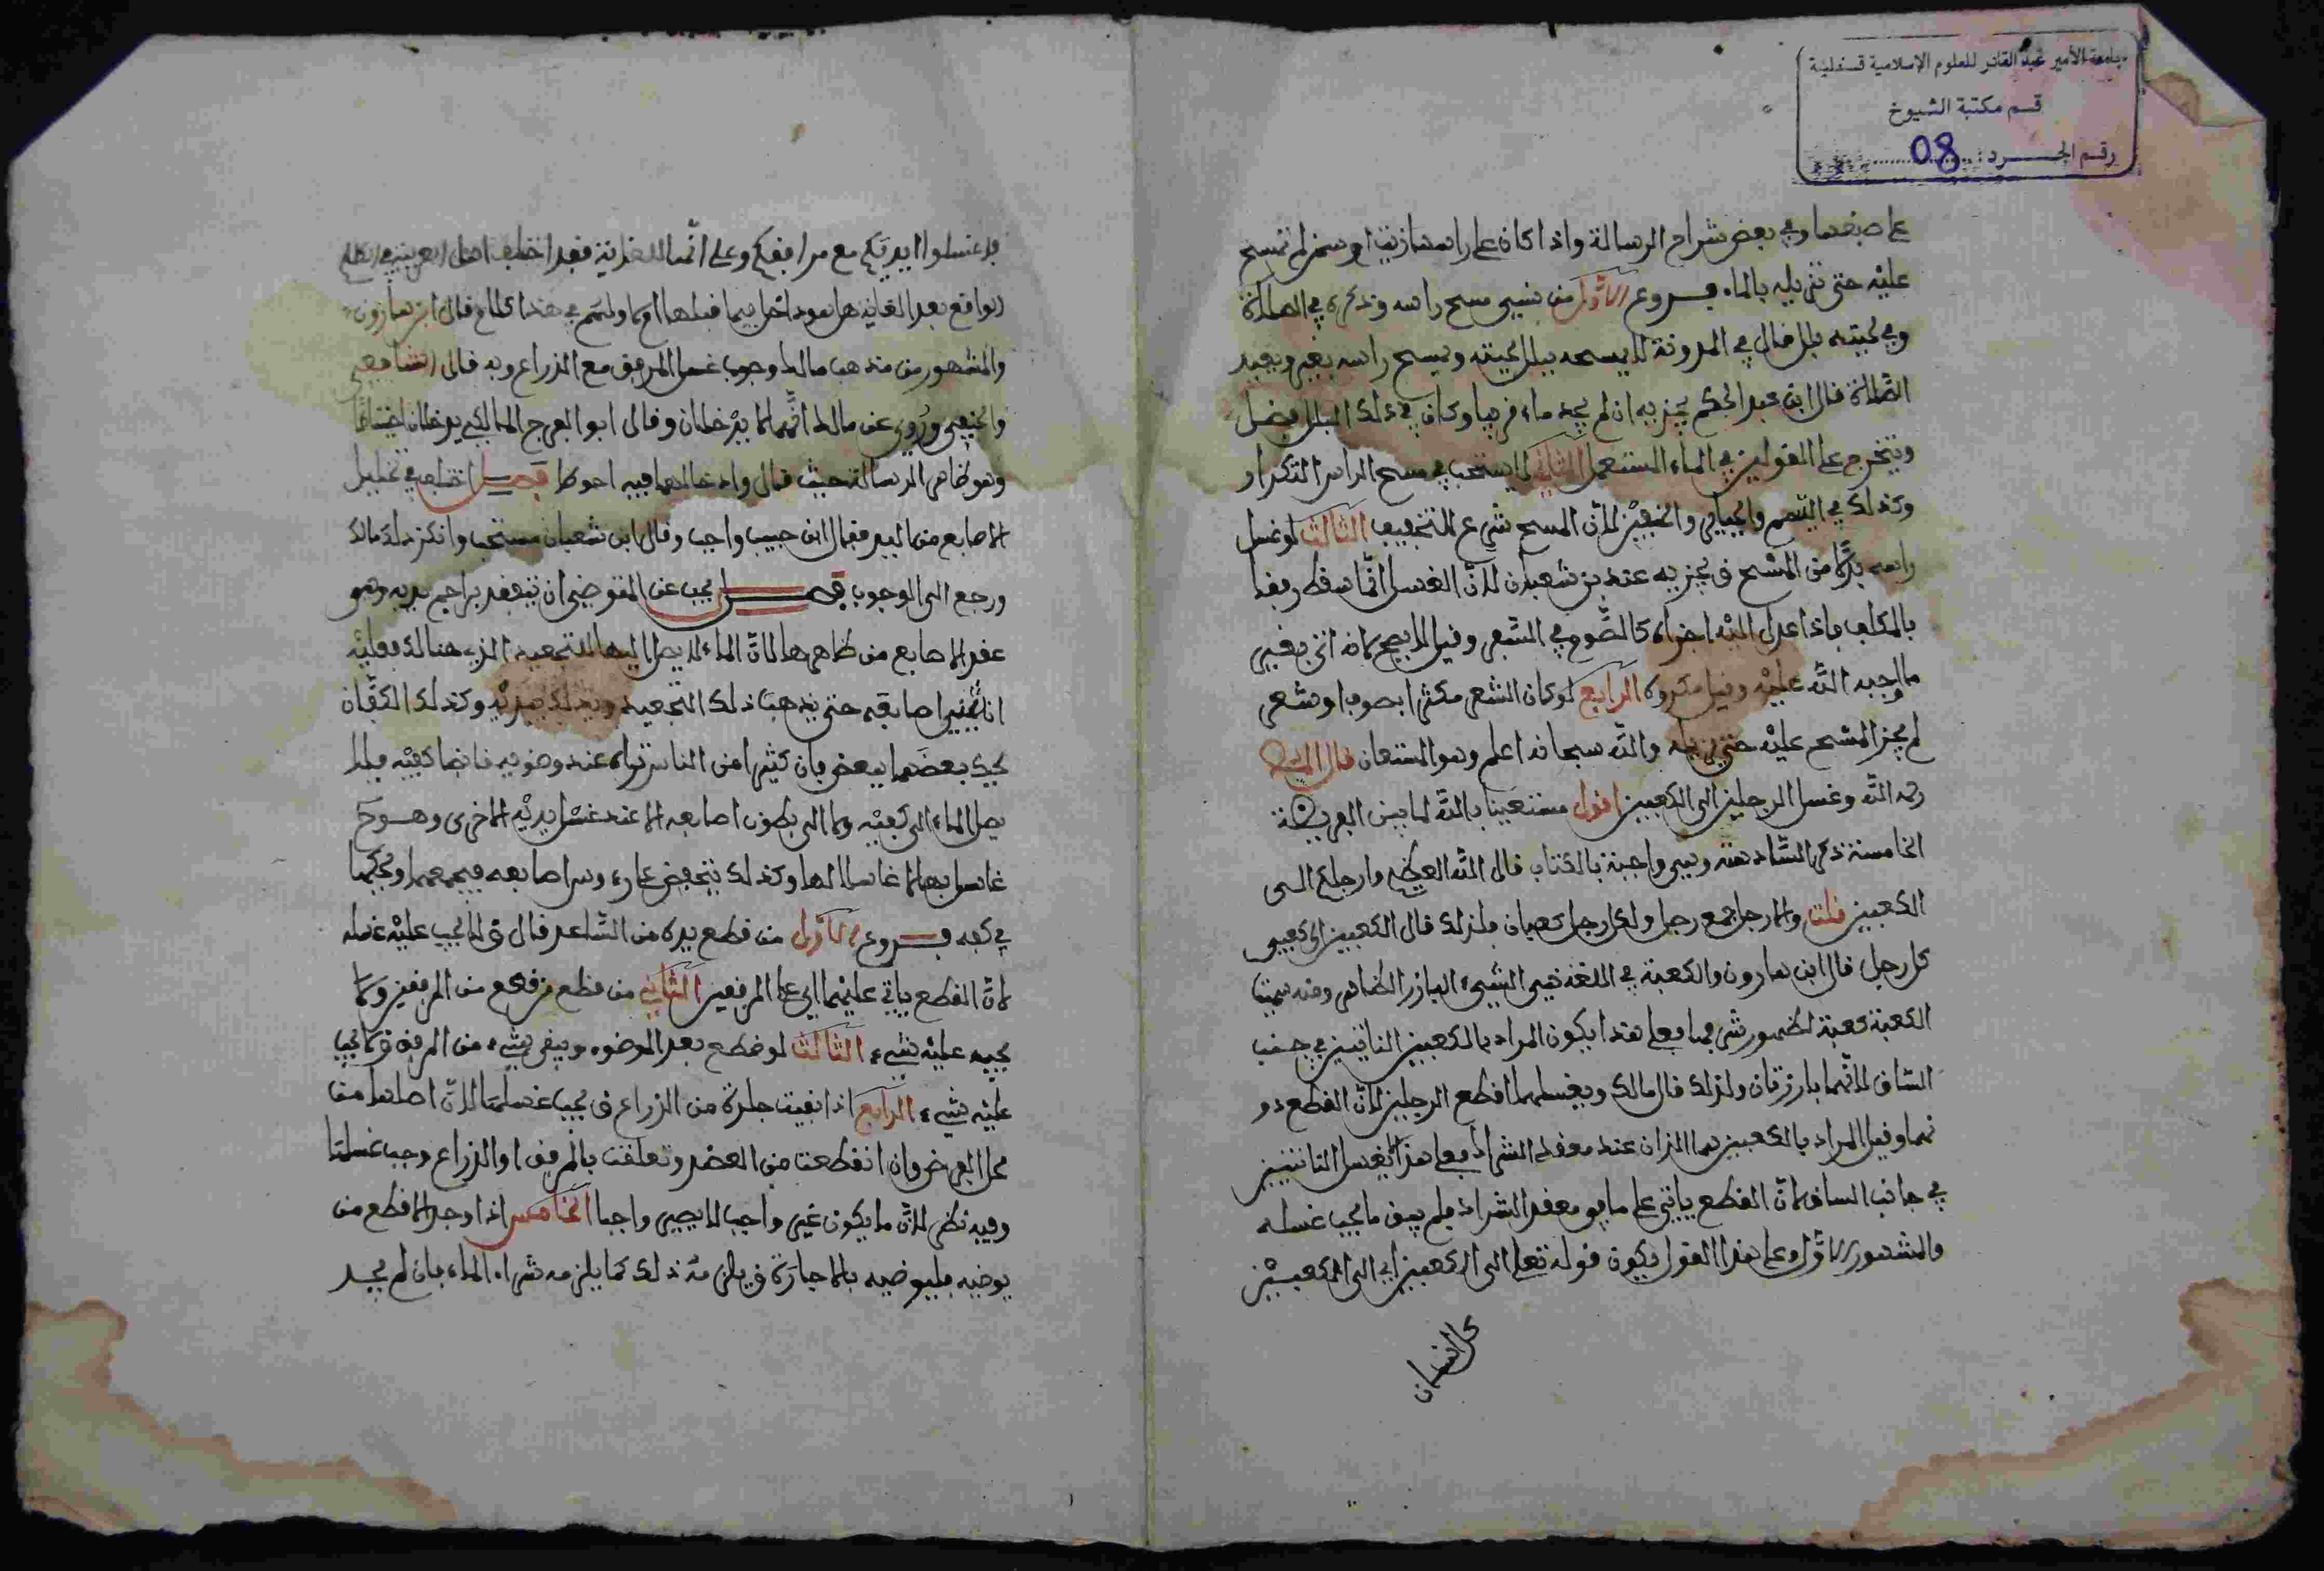 جامعة الأمير عبد القادر للعلوم الإسلامية قسنطينة
قسم مكتبة الشيوخ
رقم الجرد: 08
وفي بعض شراح الرسالة واذا كان على راسها زيت او سمن لم تمسح
عليه حتى تزيله بالماء فروع الاول من نسي مسح راسه وذكره في الصلاة
وفي لحيته بلل قال في المدونة لا يمسحه ببلل لحيته ويمسح راسه ويعيد
الصلاة قال ابن عبد الحكم يجزيه ان لم يجد ماء قريبا وكان في ذلك البلل فضل
ويتخرج على القولين في الماء المستعمل الثاني لا يستحب في مسح الراس التكرار
وكذلك في التيمم والجباير والخفين لان المسح شرع للتخفيف الثالث لو غسل
راسه بدلا من المسح يجزيه عند بن شعبان لان الغسل انما سقط رفقا
بالمكلف فاذا عدل اليه اجزاه كالصوم في السفر وقيل لا يصح لانه اتى بغير
ما اوجبه الله عليه وقيل مكروه الرابع لو كان الشعر مكثرا بصوف او شعر
لم يجز المسح عليه حتى يزيله والله سبحانه اعلم وهو المستعان قال
رحمه الله وغسل الرجلين الى الكعبين اقول مستعينا بالله لما بين الفريضة
الخامسة ذكر السادسة وهي واجبة بالكتاب قال الله العظيم وارجلكم الى
الكعبين قلت والارجل جمع رجل ولكل رجل كعبان فلذلك قال الكعبين اي كعبي
كل رجل قال ابن هارون والكعبة في اللغة هي الشيء البارز الظاهر ومنه سميت
الكعبة كعبة لظهور شرفها فعلى هذا يكون المراد بالكعبين الناتيين في جنب
الساق لانهما بارزتان ولذلك قال مالك ويغسلهما اقطع الرجلين لان القطع دو
نهما وقيل المراد بالكعبين هما اللذان عند معقد الشراك فعلى هذا يغسل الناتيين
في جانب الساق لان القطع ياتي على ما فوق معقد الشراك فلم يبق ما يجب غسله
والمشهور الاول وعلى هذا القول فيكون قوله تعلى الى الكعبين اي الى الكعبين
فاغسلوا ايديكم مع مرافقكم وعلى انها للغاية فقد اختلف اهل العربية في
الواقع بعد الغاية هل هو داخل فيما قبلها ام لا ولهم في هذا كلام قال ابن هارون
والمشهور من مذهب مالك وجوب غسل المرفق مع الذراع وبه قال الشافعي
والحنفي وروي عن مالك انهما لا يدخلان وقال ابو الفرج المالكي يدخلان احتياطا
وهو ظاهر الرسالة حيث قال وادخالهما فيه احوط فصل اختلف في تخليل
الاصابع من اليد فقال ابن حبيب واجب وقال ابن شعبان مستحب وانكر ذلك مالك
ورجع الى الوجوب فصل يجب على المتوضي ان يتفقد براجم يديه وهو
عقد الاصابع من ظاهرها لان الماء لا يصل اليها للتجعيد الذي هنالك فعليه
ان يثني اصابعه حتى يذهب ذلك التجعيد وكذلك الكفان
يحك بعضهما ببعض فان كثيرا من الناس تراه عند وضوئه قابضا كفيه فلا
يصل الماء الى كفيه ولا الى بطون اصابعه الا عند غسل يديه الاخرى وهو ح
غاسل بها لا غاسل لها وكذلك يتحفظ على رءوس اصابعه فيجمعها ويحكها
في كفه فروع الاول من قطع يده من الساعد قال لا يجب عليه غسله
لان القطع ياتي عليهما اي على المرفقين الثاني من قطع من المرفقين
يجب عليه شيء الثالث لو قطع بعد الوضوء وبقي شيء من المرفق
عليه شيء الرابع اذا بقيت جلدة من الذراع يجب غسلها لان اصلها من
محل الفرض وان انقطعت من العضد وتعلقت بالمرفق او الذراع وجب غسلها
وفيه نظر لان ما يكون غير واجب لا يصير واجبا الخامس اذا وجد الاقطع من
يوضيه فليوضيه بالاجارة يلزمه ذلك كما يلزمه شراء الماء فان لم يجد